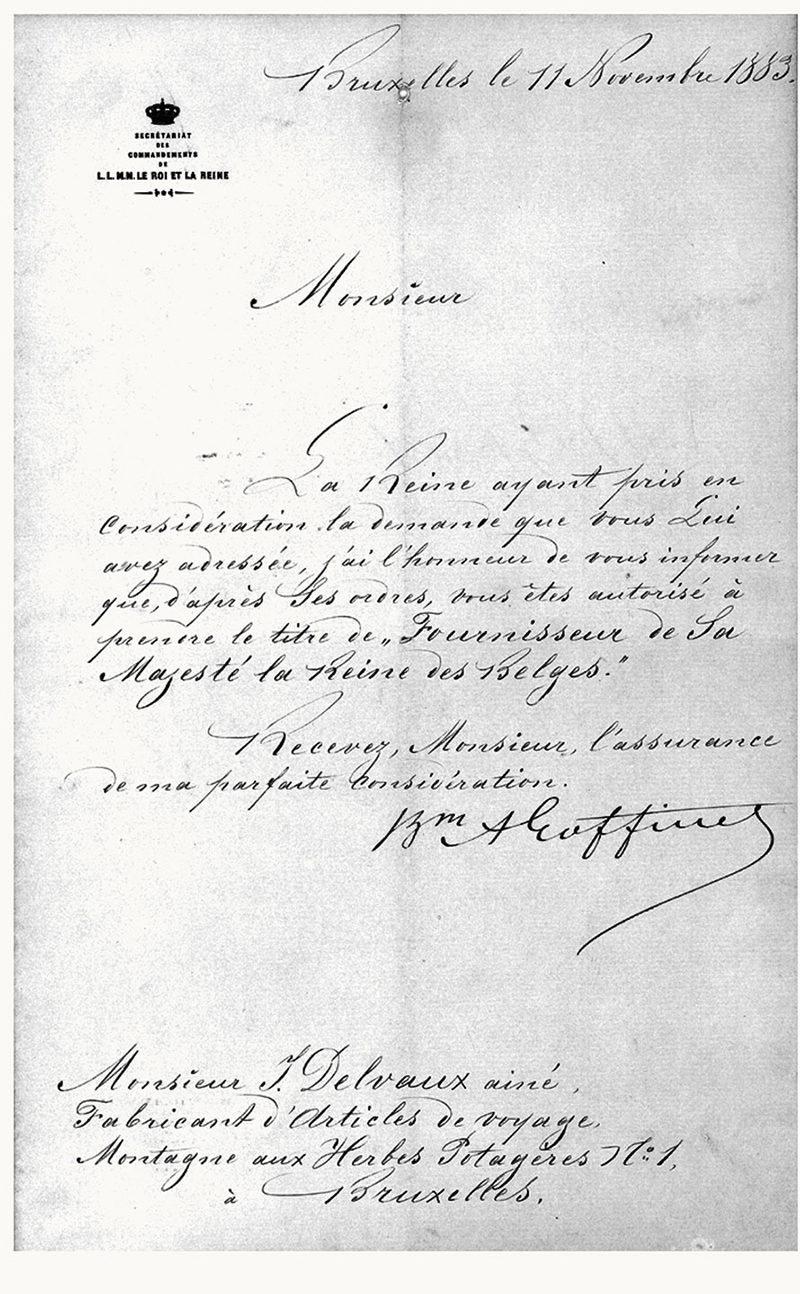 Bruxelles le 11 Novembre 1883.
SECRÉTARIAT
DES
COMMANDEMENTS
DE
L.L.M.M. LE ROI ET LA REINE
Monsieur
La Reine ayant pris en
considération la demande que vous Lui
avez adressée, j'ai l'honneur de vous informer
que, d'après Ses ordres, vous êtes autorisé à
prendre le titre de „Fournisseur de Sa
Majesté la Reine des Belges."
Recevez, Monsieur, l'assurance
de ma parfaite considération.
Bᵒⁿ A Goffinet
Monsieur J. Delvaux ainé,
Fabricant d'Articles de voyage,
Montagne aux Herbes Potagères Nº 1,
à Bruxelles.